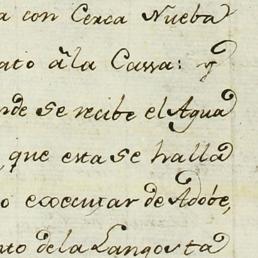 a con Cerca Nueba
ato â la Cassa: y
nde se recibe el Agua
, que esta se halla
o execuxar de Adôbe,
nto dela Langosta